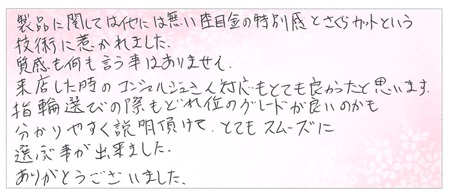 製品に関しては他には無い杢目金の特別感とさくらカットという
技術に惹かれました。
質感も何も言う事はありません。
来店した時のコンシェルジュさん対応もとても良かったと思います。
指輪選びの際もどれ位のグレードが良いのかも
分かりやすく説明頂けて、とてもスムーズに
選ぶ事が出来ました。
ありがとうございました。